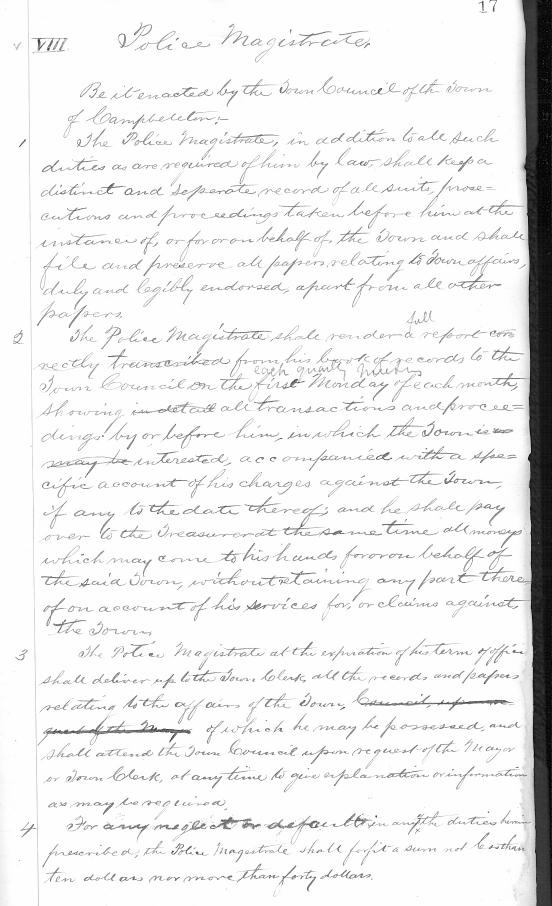 17
VIII Police Magistrate,
Be it enacted by the Town Council of the Town
of Campbelston:-
1 The Police Magistrate, in addition to all such
duties as are required of him by law, shall keep a
distinct and seperate record of all suits, prose=
cutions and proceedings taken before him at the
instance of, or for or on behalf of, the Town and shall
file and preserve all papers relating to Town affairs,
duly and legibly endorsed, apart from all other
papers.
full
2 The Police Magistrate shall render a report cor
rectly transcribed from his book of records to the
each quarterly
Town Council on the first Monday of each month,
showing in detail all transactions and procee=
dings by or before him, in which the Town is or
may be interested, accompanied with a spe=
cific account of his charges against the Town,
if any to the date thereof; and he shall pay
over to the Treasurer at the same time all moneys
which may come to his hands for or on behalf of
the said Town, without retaining any part there
of on account of his services for, or claims against,
the Town.
3 The Police Magistrate at the expiration of his term of office
shall deliver up to the Town Clerk, all the records and papers
relating to the affairs of the Town, Council, upon re
quest of the Mayor of which he may be possessed, and
shall attend the Town Council upon request of the Mayor
or Town Clerk, at any time to give explanation or information
as may be required.
4 For any neglect or default in any of the duties herein
prescribed, the Police Magistrate shall forfeit a sum not less than
ten dollars nor more than forty dollars.